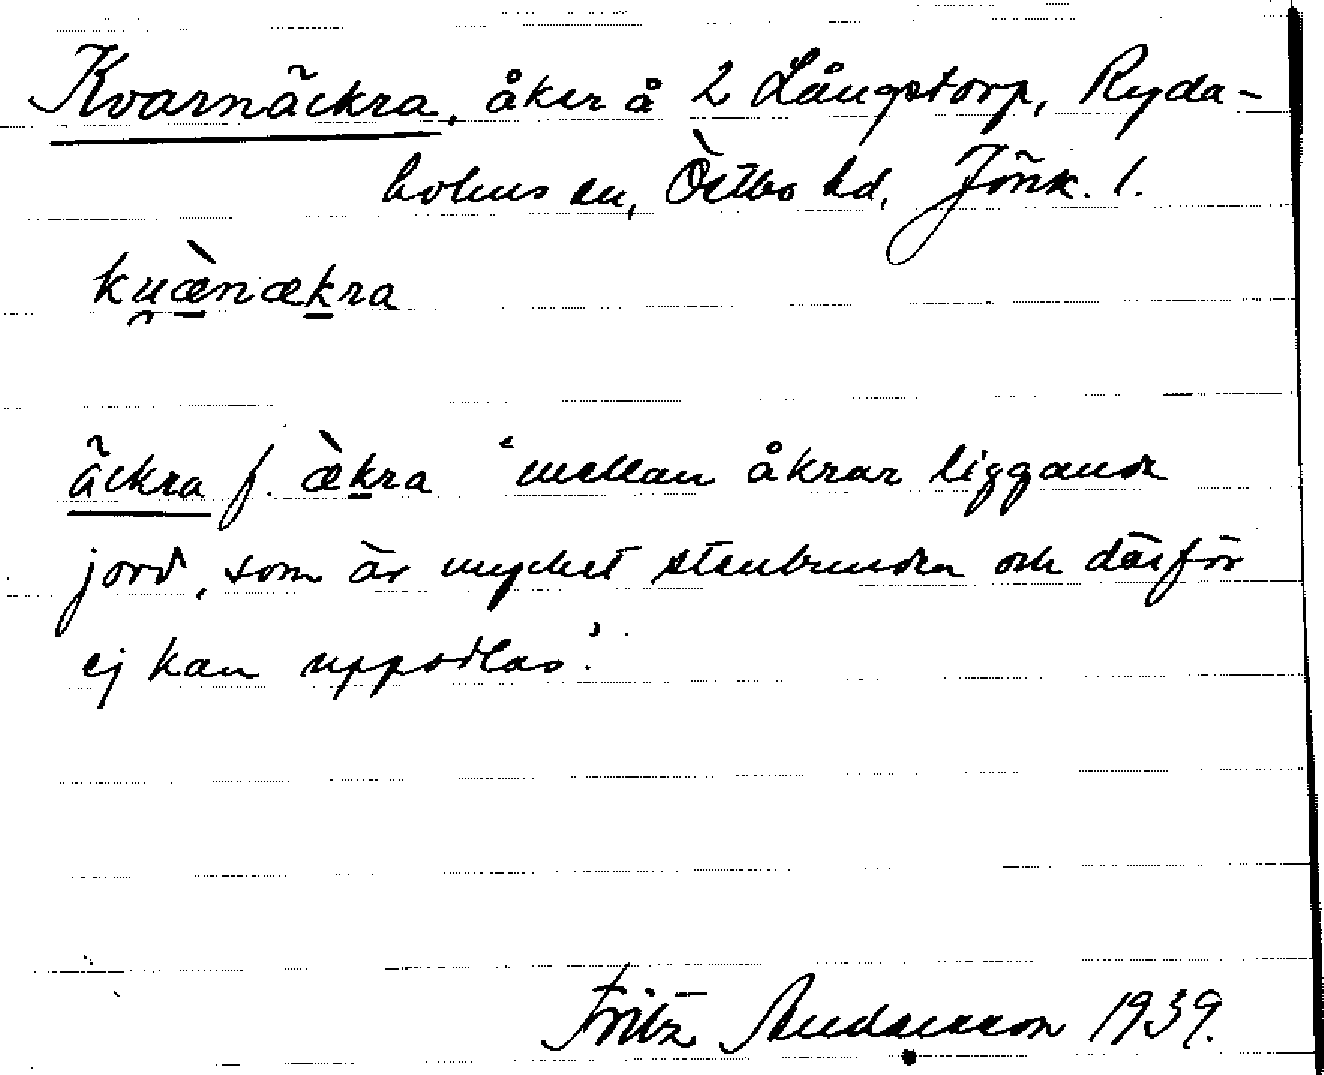 Kvarnäckra, åker å 2 Långstorp, Ryda-
holms sn, Östbo hd, Jönk. l.
ku̯æ̀nækra
äckra f. æ̀kra 'mellan åkrar liggande
jord, som är mycket stenbunden och därför
ej kan uppodlas'.
Fritz Andersson 1939.